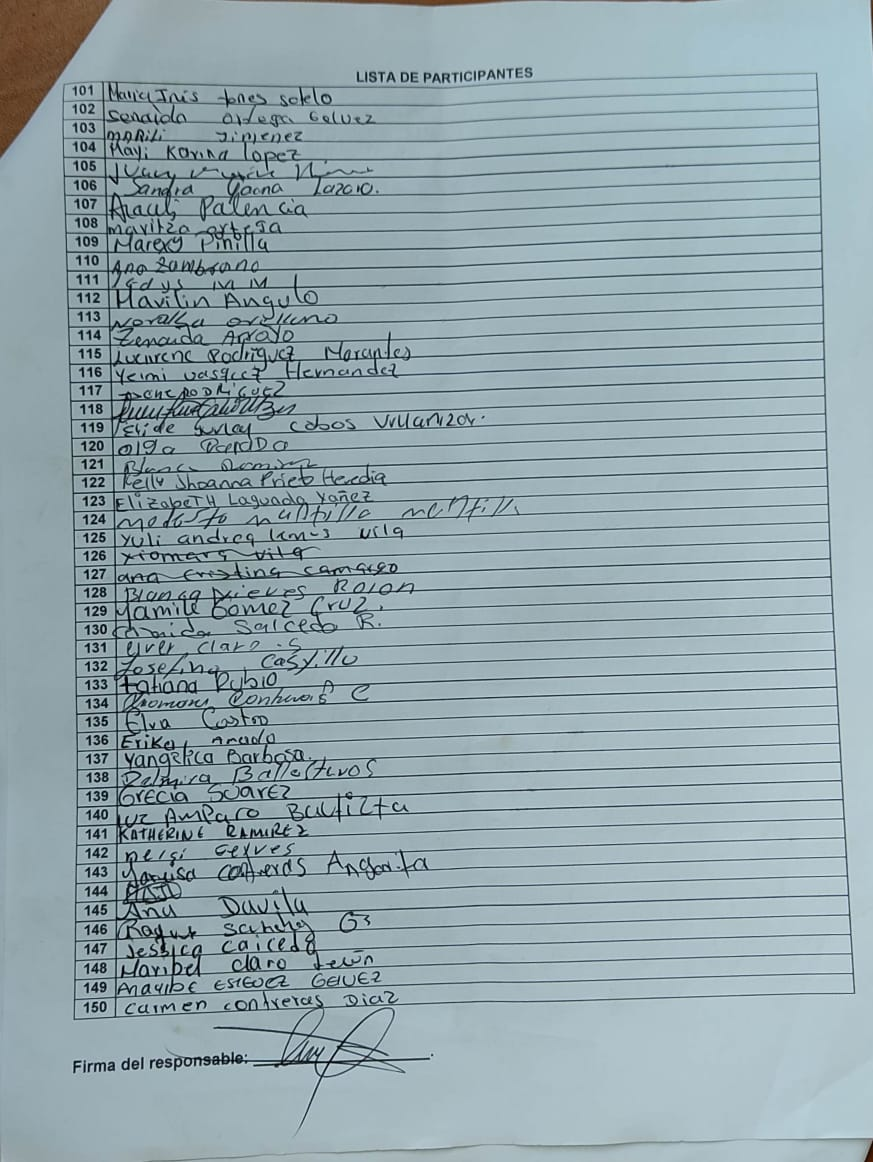 LISTA DE PARTICIPANTES
101 Maria Inis torres sotelo
102 Senaida Ortega Gelvez
103 MARILI Jimenez
104 Mayi Karina lopez
105
106 Sandra Gaona
107 Araceli Palencia
108 maritza ortega
109 Marexy Pinilla
110 Ana Zambrano
111 M M
112 Mavilin Angulo
113 Noralba orellano
114 Zenaida Arroyo
115 Rodriguez Morantes
116 Yeimi vasquez Hernandez
117 RODRIGUEZ
118
119 cobos Villamizar.
120 olga PardO
121 Blanca Ramirez
122 Kelly Jhoanna Prieto Heredia
123 ElizabeTH Laguado Yañez
124 modesto mantilla mantilla
125 yuli andrea lemus vila
126 xiomara vila
127 ana cristina camargo
128 Blanca Nieves Rolon
129 Yamile Gomez Cruz.
130 Salcedo R.
131 claro .S
132 Josefina Casyillo
133 tatiana Rubio
134 C
135 Elva Castro
136 Erika Amado
137 Yangelica Barbosa.
138 Palmira Ballesteros
139 Grecia SUAREZ
140 luz Amparo Bautizta
141 KATHERINE RAMIREZ
142 neisi Gelves
143 contreras Angarita
144
145 Ana Davila
146 Raquel sanchez
147 Jessica caicedo
148 Maribel claro
149 MAYIBE ESTEVEZ GELVEZ
150 Carmen contreras Diaz
Firma del responsable: